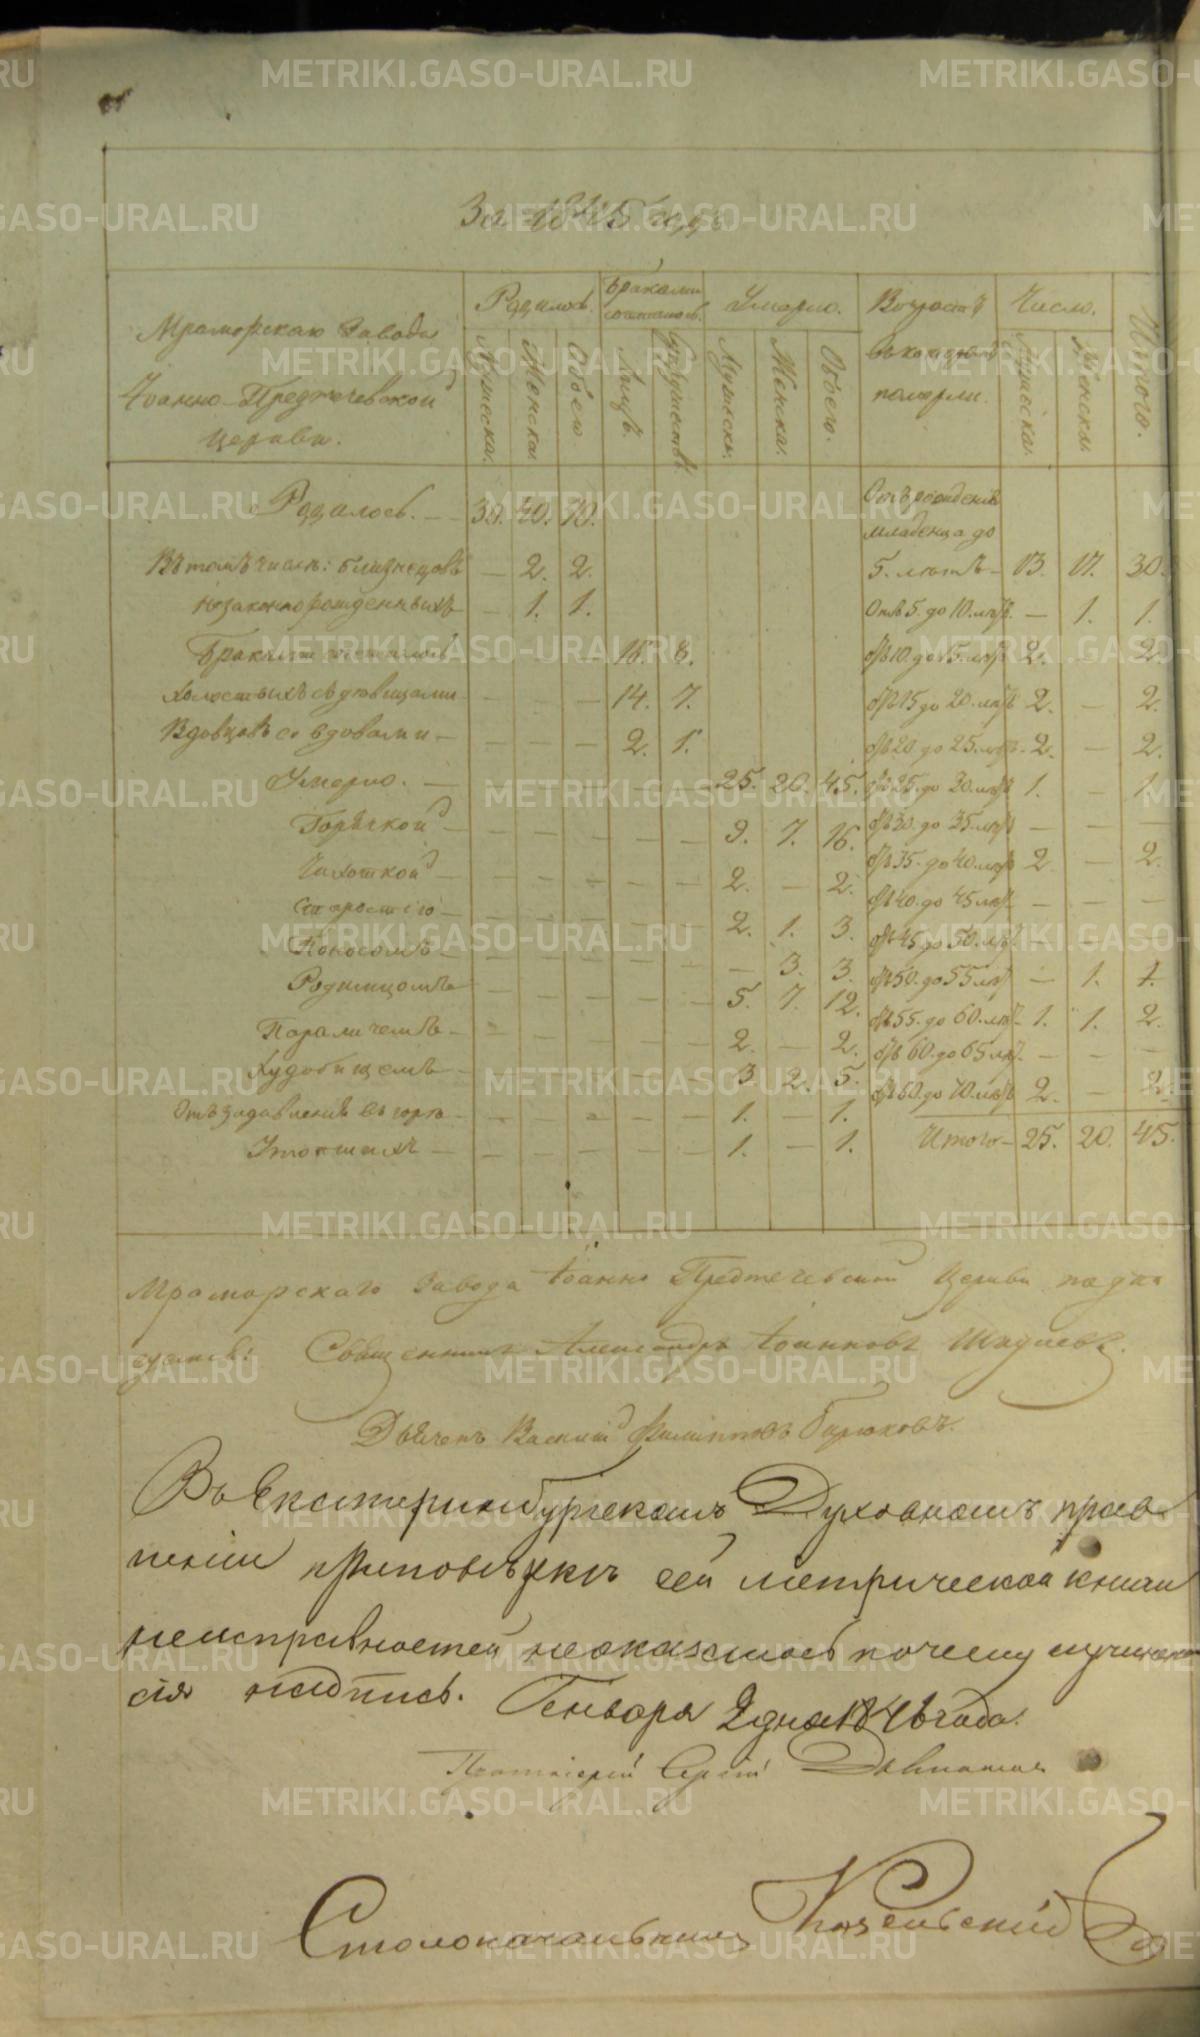 За 1845 годъ
Мраморскаго Завода
Іоанно-Предтечевской
Церкви.
Родилось.
Браками
сочеталось.
Умерло.
Возрастъ
въ которомъ
померли.
Число.
Итого.
Мужеска.
Женска.
Обоего
Лицъ.
Супружествъ.
Мужеска.
Женска.
Обоего.
Мужеска.
Женска.
Родилось. — 30. 40. 70.
Отъ рожденія
младенца до
Въ томъ числѣ: близнецовъ — 2. 2.
5. лѣтъ — 13. 17. 30.
Незаконнорожденныхъ — 1. 1.
Отъ 5. до 10. лѣтъ. — 1. 1.
Браками сочеталось — — — 16. 8.
Отъ 10. до 15. лѣтъ 2. — 2.
Холостыхъ съ дѣвицами — — — 14. 7.
Отъ 15 до 20. лѣтъ 2. — 2.
Вдовцовъ со вдовами — — — — 2. 1.
Отъ 20. до 25. лѣтъ. 2. — 2.
Умерло. — — — — — — 25. 20. 45.
Отъ 25. до 30. лѣтъ 1. — 1.
Горячкой — — — — — — 9. 7. 16.
Отъ 30. до 35. лѣтъ — — —
Чахоткой — — — — — — 2. — 2.
Отъ 35. до 40. лѣтъ 2 — 2.
Старостію — — — — — — 2. 1. 3.
Отъ 40. до 45 лѣтъ. — — —
Поносомъ — — — — — — — 3. 3.
Отъ 45 до 50. лѣтъ. — — —
Родимцомъ — — — — — — 5. 7. 12.
Отъ 50. до 55 лѣтъ — 1. 1.
Параличемъ — — — — — — 2. — 2.
Отъ 55. до 60. лѣтъ — 1. 1. 2.
Худобищемъ — — — — — — 3. 2. 5.
Отъ 60. до 65 лѣтъ. — — —
Отъ задавленія въ горѣ — — — — — — 1. — 1.
до 70. лѣтъ 2. — 2.
Утопшихъ — — — — — — 1. — 1.
Итого — 25. 20. 45.
Мраморскаго Завода Іоанно Предтечевской Церкви
Священникъ Александръ Іоанновъ
Дьячекъ Василій Филипповъ Бирюковъ.
Въ Екатеринбургскомъ Духовномъ прав-
леніи при повѣркѣ сей метрической книги
неисправностей неоказалось почему и учинена
сія надпись. Генваря 2 дня 1846 года.
Протоіерей Сергій
Столоначальникъ
METRIKI.GASO-URAL.RU